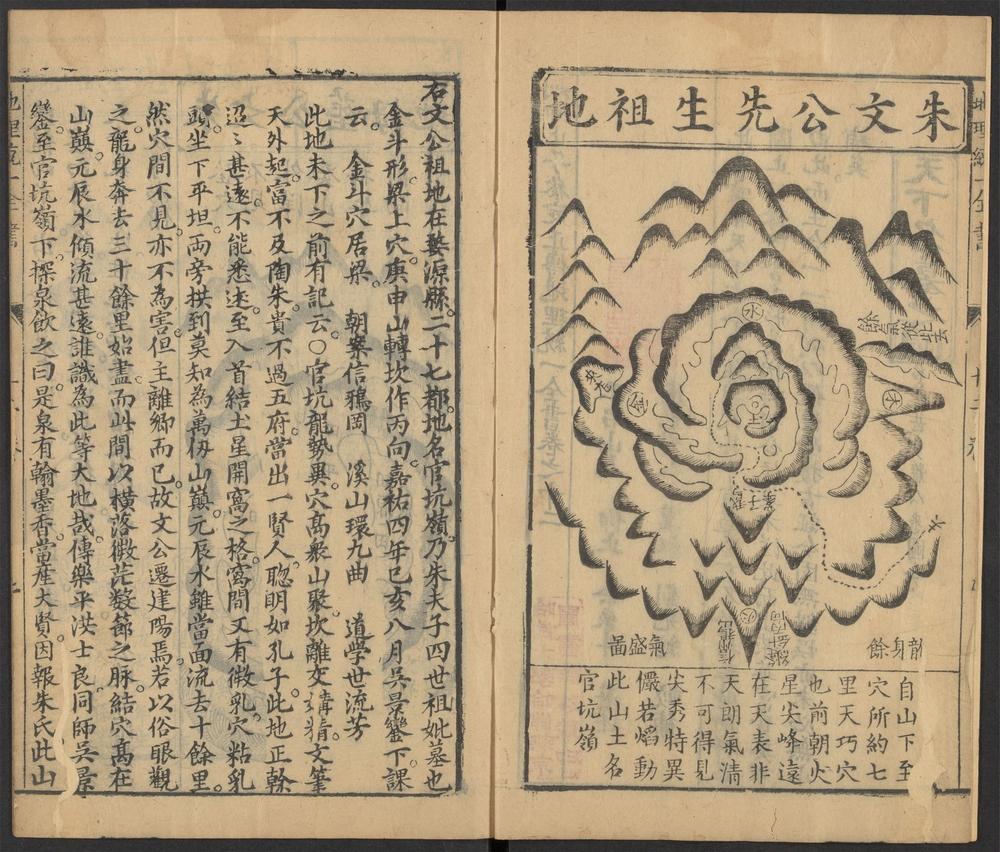 朱文公先生祖地
餘氣從此去
水
金
木
土
案子
火
氣盛畐
餘身
自山下至
穴所約七
里天巧穴
也前朝火
星尖峰遠
在天表非
天朗氣清
不可得見
尖秀特異
儼若熖動
此山土名
官坑嶺
右文公祖地在婺源縣二十七都地名官坑嶺乃朱夫子四世祖妣墓也
金斗形梁上穴庚申山轉坎作丙向嘉祐四年己亥八月吳景鸞下課
云 金斗穴居梁 朝案信鴉岡 溪山環九曲 道學世流芳
此地未下之前有記云〇官坑龍勢異穴髙衆山聚坎離交媾精文筆
天外起富不及陶朱貴不過五府當出一賢人聰明如孔子此地正榦
迢〻甚遠不能悉述至入首結土星開窩之格窩間又有微乳穴粘乳
頭坐下平坦両旁拱到莫知為萬仞山巔元辰水雖當面流去十餘里
然穴間不見亦不為害但主離鄉而已故文公遷建陽焉若以俗眼觀
之龍身奔去三十餘里始盡而此間以橫落微茫数節之脉結穴髙在
山巔元辰水傾流甚遠誰識為此等大地哉傳樂平洪士良同師吳景
鸞至官坑嶺下探泉飲之曰是泉有翰墨香當産大賢因報朱氏此山